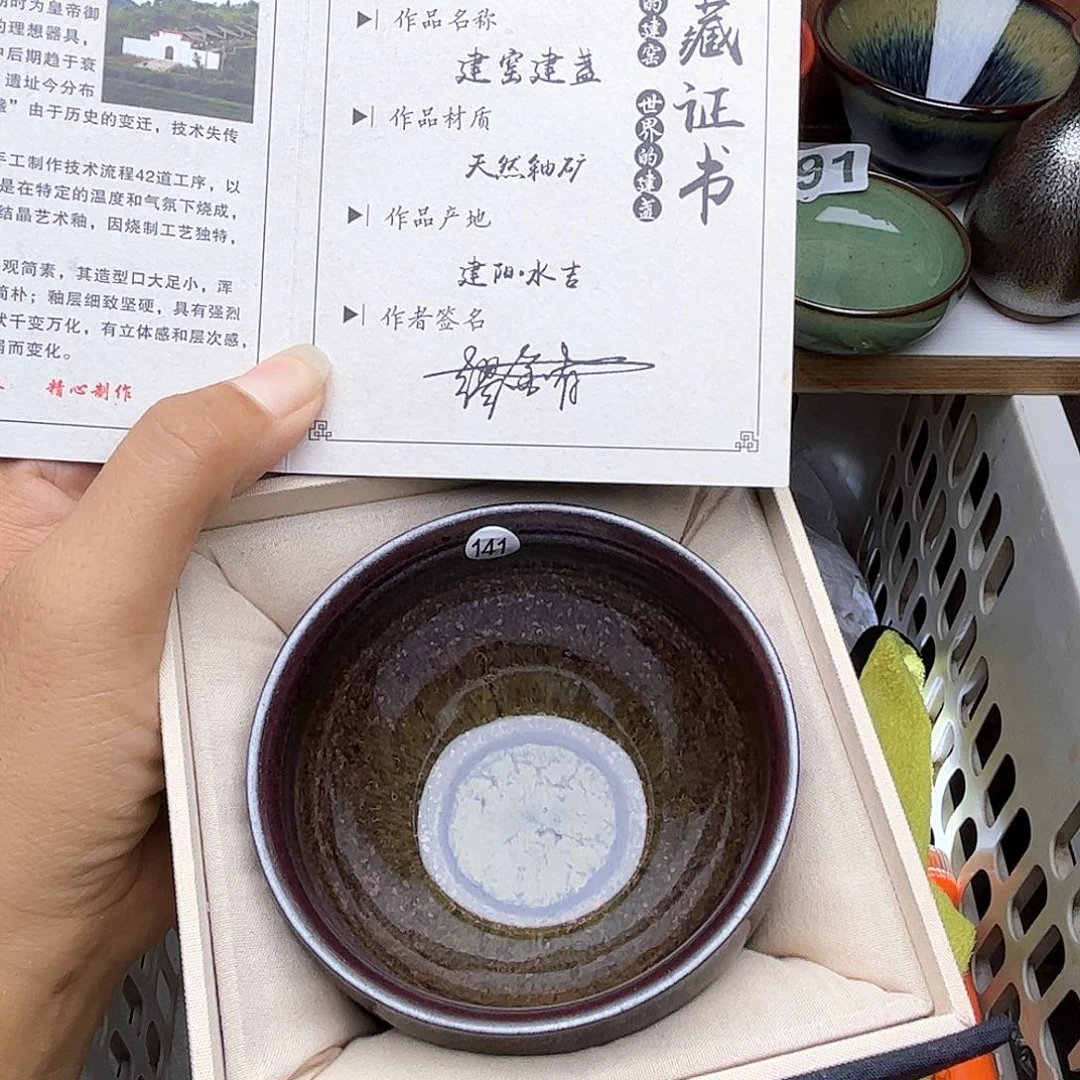 期时为皇帝御
的理想器具，
中后期趋于衰
遗址今分布
盏”由于历史的变迁，技术失传
手工制作技术流程42道工序，以
是在特定的温度和气氛下烧成，
结晶艺术釉，因烧制工艺独特，
观简素，其造型口大足小，浑
简朴；釉层细致坚硬，具有强烈
状千变万化，有立体感和层次感，
而变化。
精心制作
作品名称
建窑建盏
作品材质
天然釉矿
作品产地
建阳·水吉
作者签名
的建窑
世界的建盏
藏证书
91
141